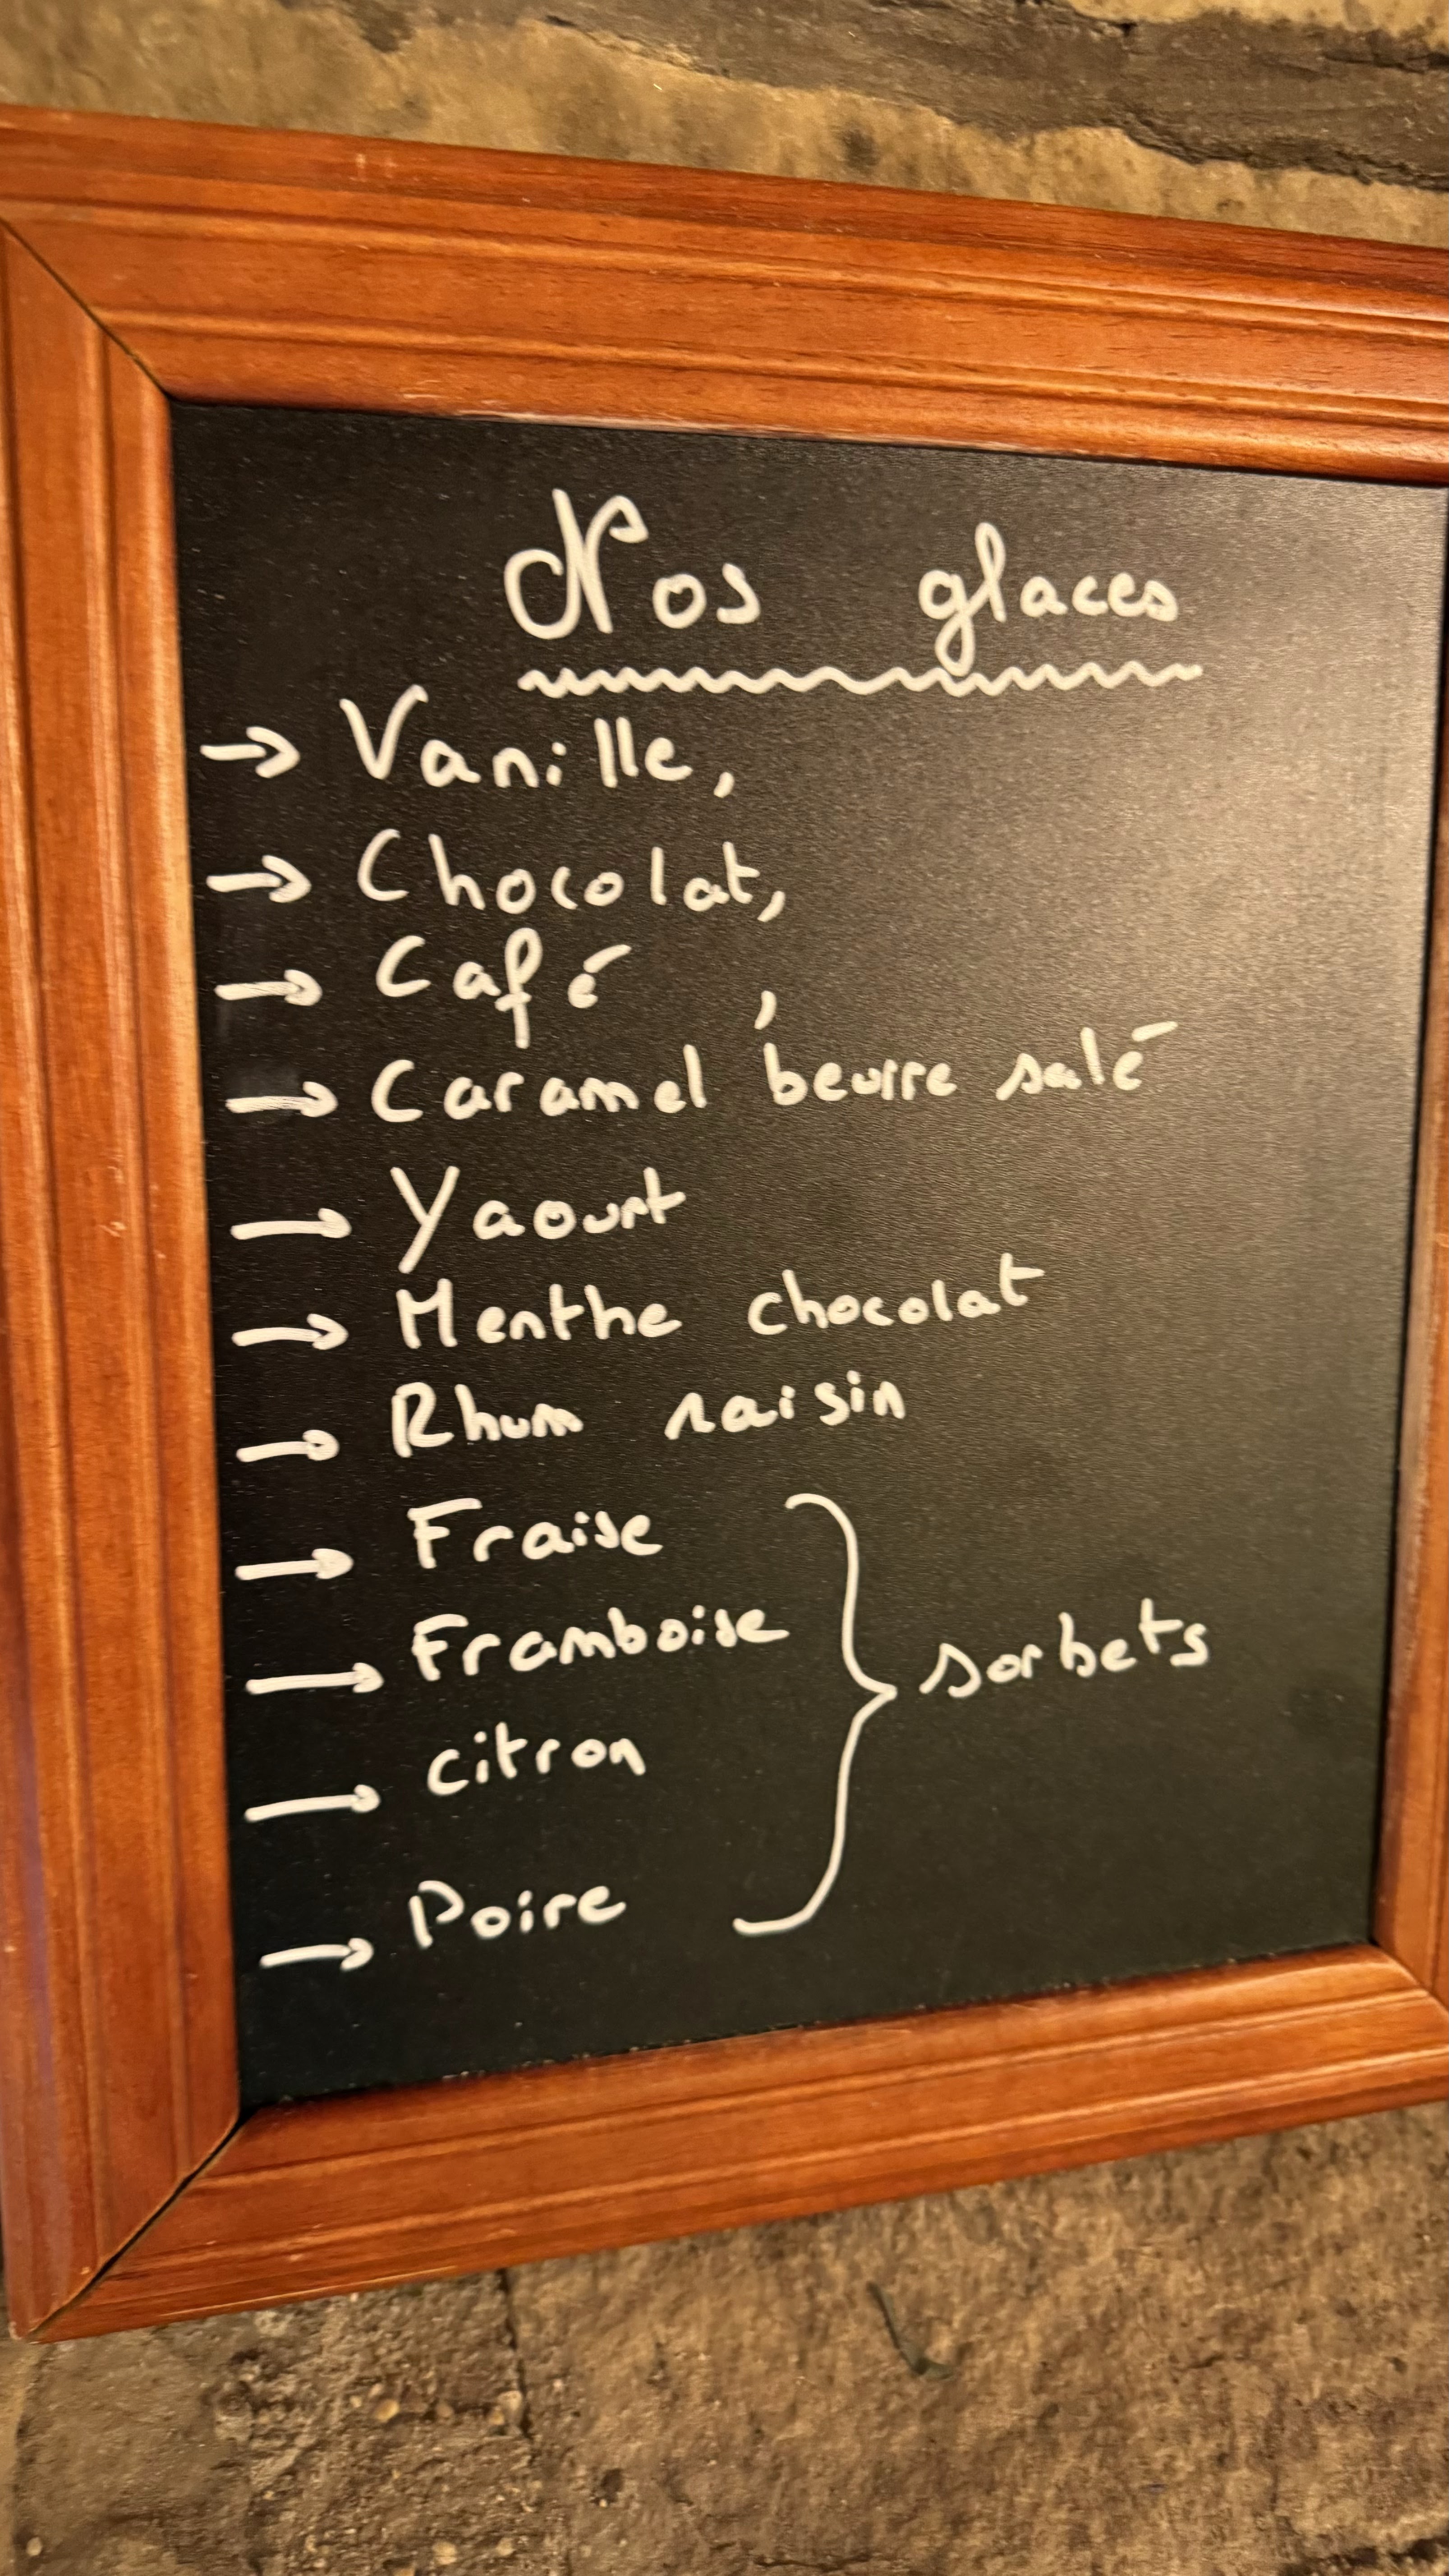 Nos glaces
→ Vanille,
→ Chocolat,
→ Café ,
→ Caramel beurre salé
→ Yaourt
→ Menthe chocolat
→ Rhum raisin
→ Fraise
→ Framboise
} sorbets
→ citron
→ Poire